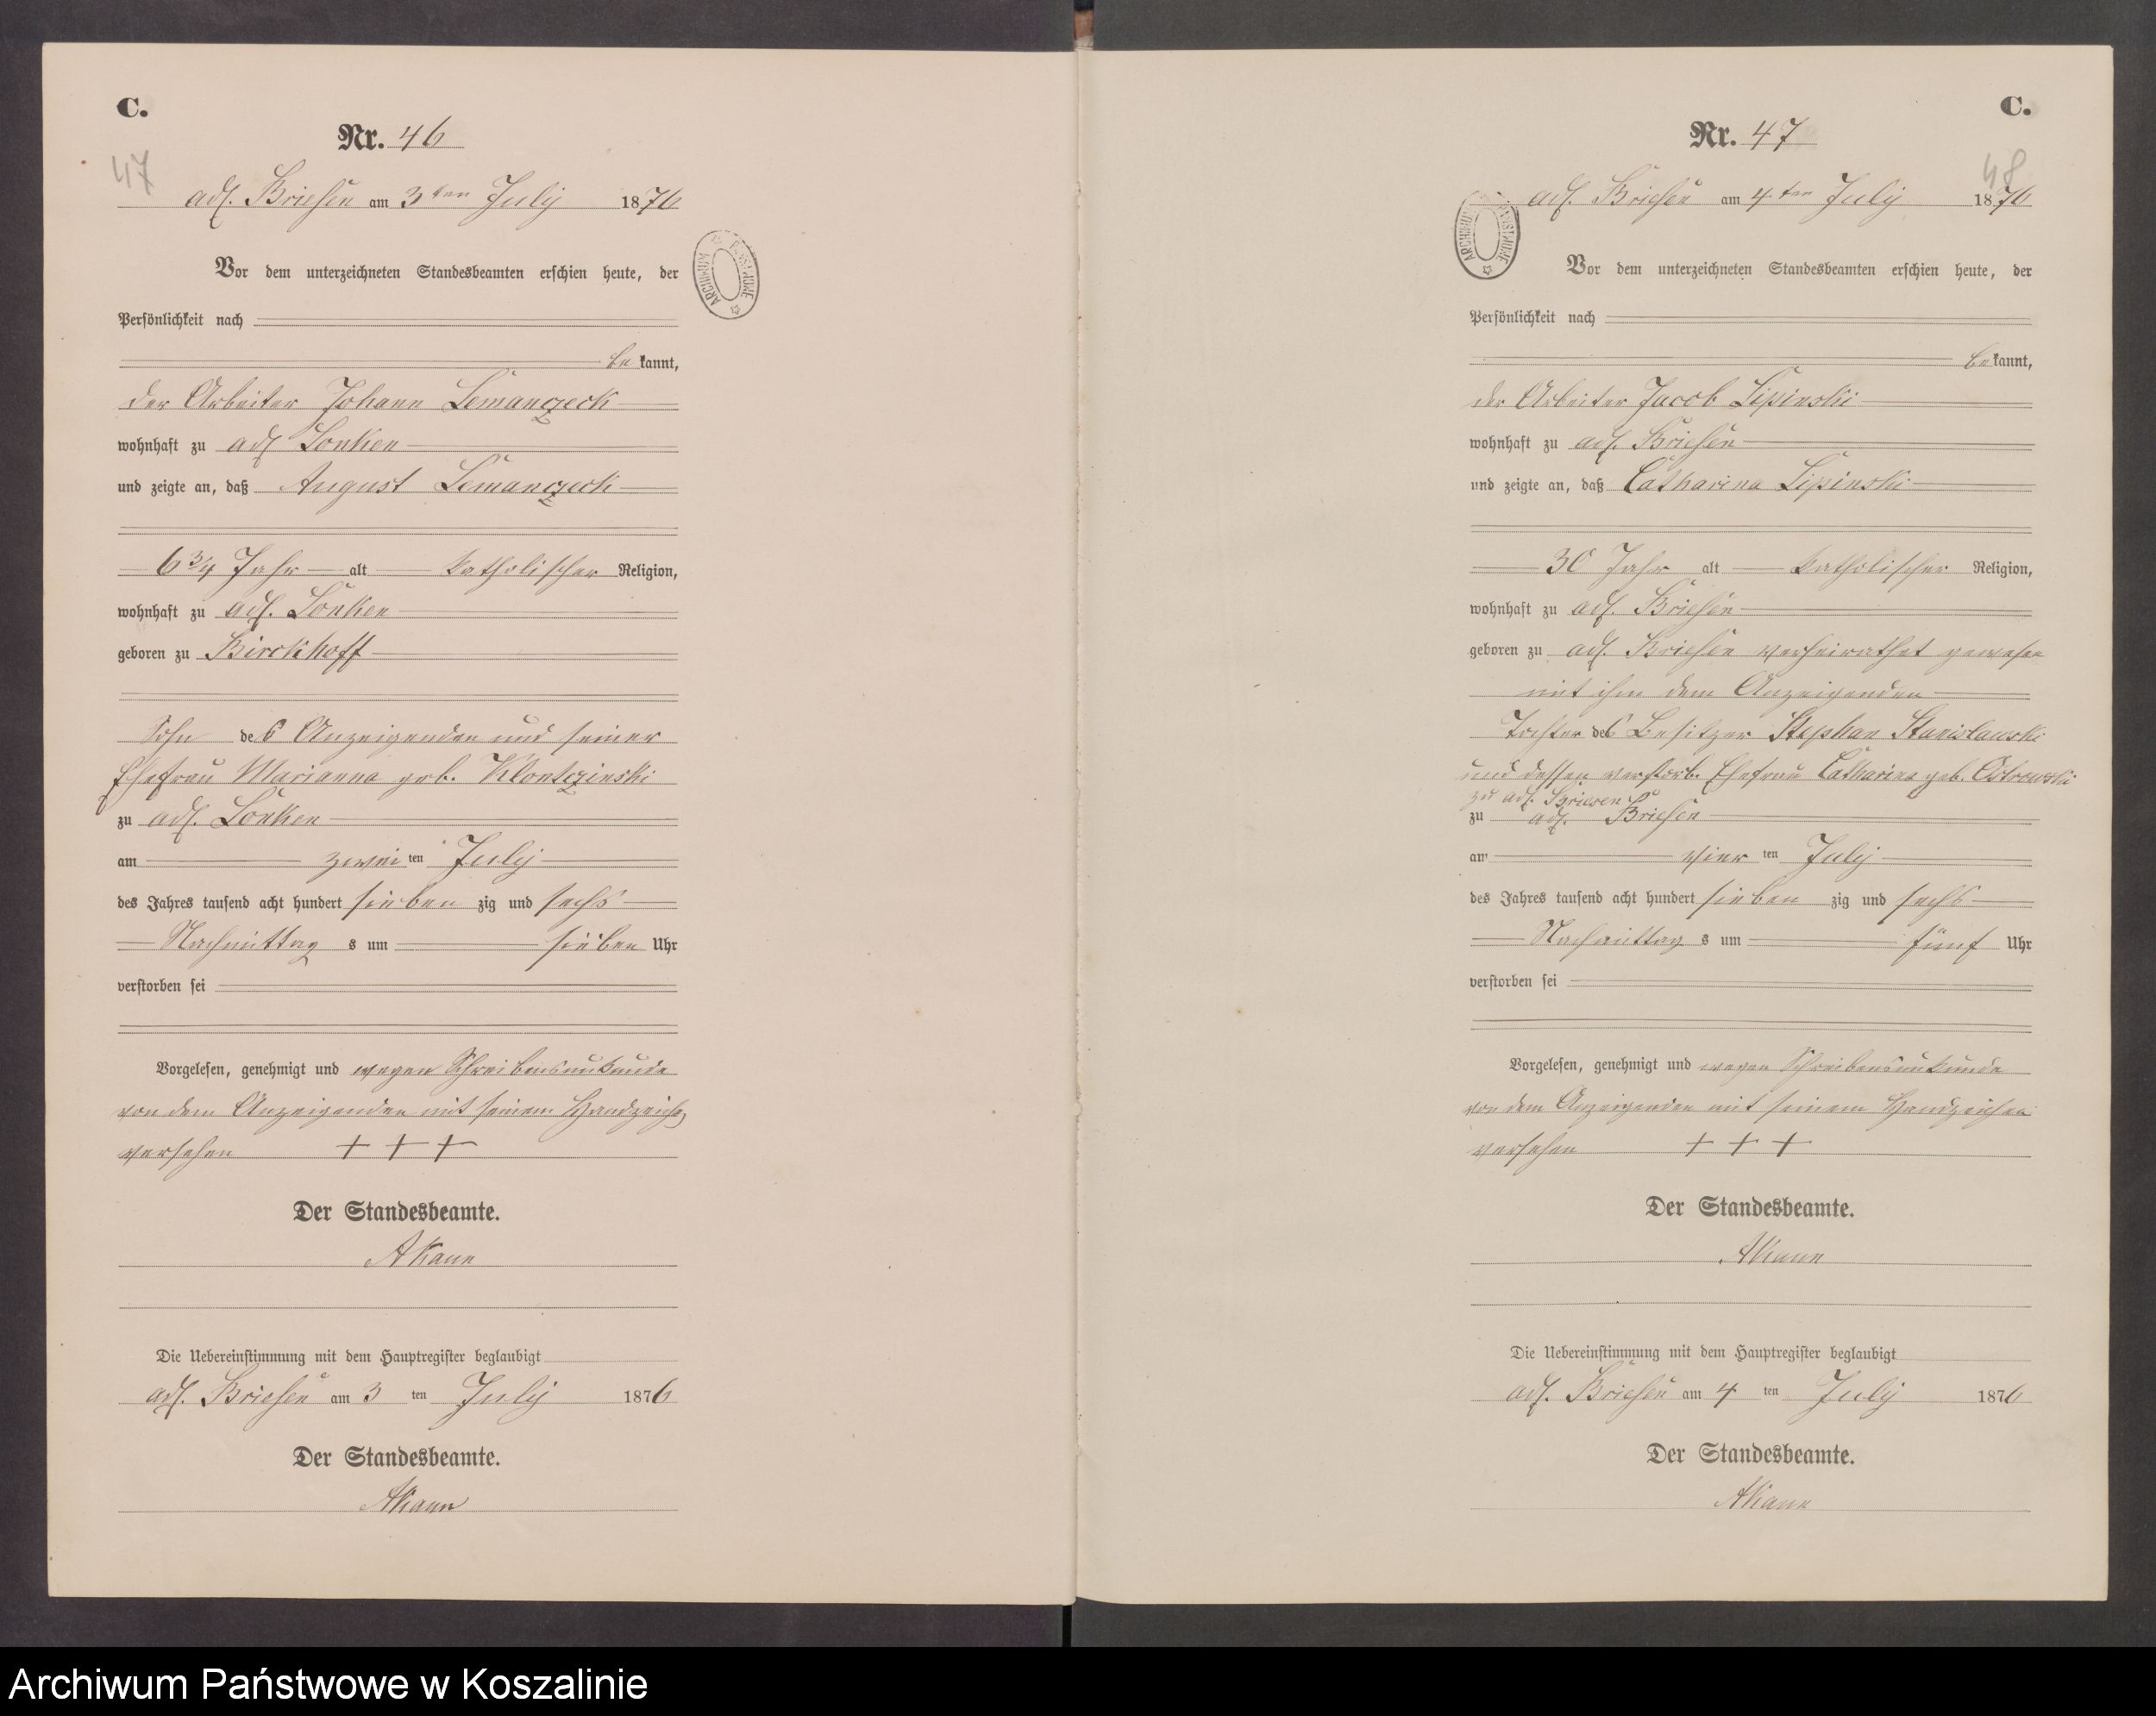 C.
Nr. 46
47
adl. Briesen am 3ten July 1876
Vor dem unterzeichneten Standesbeamten erschien heute, der
Persönlichkeit nach
be kannt,
der Arbeiter Johann Lemanczeck
wohnhaft zu adl Lonken
und zeigte an, daß August Lemanczeck
6 3/4 Jahr alt katholischer Religion,
wohnhaft zu adl. Lonken
geboren zu Birckhoff
Sohn des Anzeigenden und seiner
Ehefrau Marianna geb. Klontzinski
zu adl. Lonken
am zwei ten July
des Jahres tausend acht hundert sieben zig und sechs
Nachmittag s um sieben Uhr
verstorben sei
Vorgelesen, genehmigt und wegen Schreibensunkunde
von dem Anzeigenden mit seinem Handzeichen
versehen + + +
Der Standesbeamte.
AKann
Die Uebereinstimmung mit dem Hauptregister beglaubigt
adl. Briesen am 3 ten July 1876
Der Standesbeamte.
AKann
ARCHIWUM PAŃSTWOWE
C.
Nr. 47
48
adl. Briesen am 4ten July 1876
ARCHIWUM PAŃSTWOWE
Vor dem unterzeichneten Standesbeamten erschien heute, der
Persönlichkeit nach
be kannt,
der Arbeiter Jacob Lipinski
wohnhaft zu adl. Briesen
und zeigte an, daß Catharina Lipinski
30 Jahr alt katholischer Religion,
wohnhaft zu adl. Briesen
geboren zu adl. Briesen verheirathet gewesen
mit ihm dem Anzeigenden
Tochter des Besitzer Stephan Stanislawski
und dessen verstorb. Ehefrau Catharina geb. Ostrowski
zu adl. Briesen
zu adl. Briesen
am vier ten July
des Jahres tausend acht hundert sieben zig und sechs
Nachmittag s um fünf Uhr
verstorben sei
Vorgelesen, genehmigt und wegen Schreibensunkunde
von dem Anzeigenden mit seinem Handzeichen
versehen + + +
Der Standesbeamte.
AKann
Die Uebereinstimmung mit dem Hauptregister beglaubigt
adl. Briesen am 4 ten July 1876
Der Standesbeamte.
AKann
Archiwum Państwowe w Koszalinie